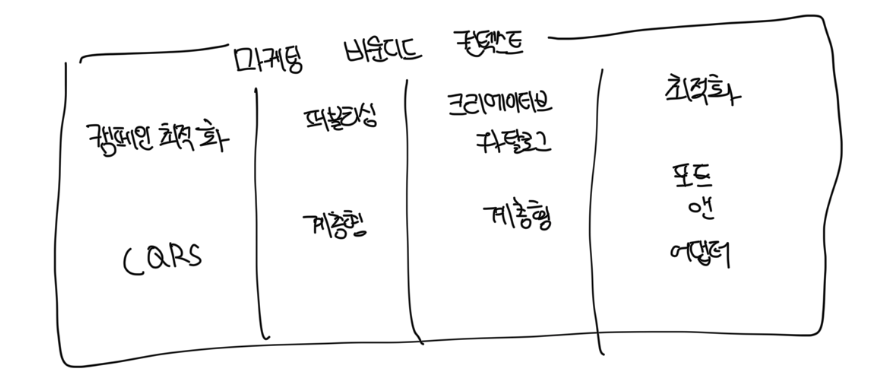 마케팅 바운디드 컨텍스트
캠페인 최적화
CQRS
퍼블리싱
계층형
크리에이티브
카탈로그
계층형
최적화
포트
앤
어댑터